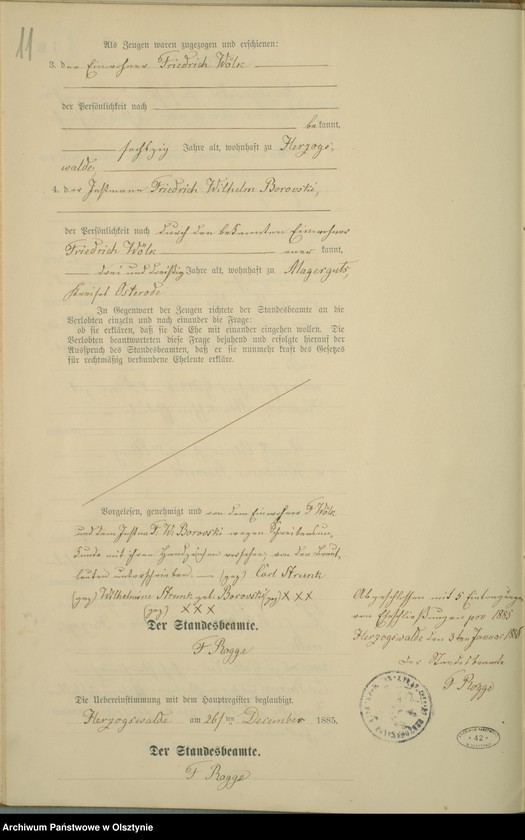 11
Als Zeugen waren zugezogen und erschienen:
3. der Einwohner Friedrich Wölk
der Persönlichkeit nach
bekannt,
sechszig Jahre alt, wohnhaft zu Herzogs-
walde,
4. der Instmann Friedrich Wilhelm Borowski,
der Persönlichkeit nach durch den bekannten Einwohner
Friedrich Wölk kannt,
drei und dreißig Jahre alt, wohnhaft zu
Kreises Osterode
In Gegenwart der Zeugen richtete der Standesbeamte an die
Verlobten einzeln und nach einander die Frage:
ob sie erklären, daß sie die Ehe mit einander eingehen wollen. Die
Verlobten beantworteten diese Frage bejahend und erfolgte hierauf der
Ausspruch des Standesbeamten, daß er sie nunmehr kraft des Gesetzes
für rechtmäßig verbundene Eheleute erkläre.
Vorgelesen, genehmigt und von dem Einwohner F. Wölk
und dem Instm. F. W. Borowski wegen Schreibenun-
kunde mit ihren Handzeichen versehen, von den Braut-
leuten unterschrieben. (gez) Carl Strunk
(gez) Wilhelmine Strunk geb. Borowski (gez) X X X
(gez) X X X
Der Standesbeamte.
F Rogge
Abgeschlossen mit 5 Eintragungen
von Eheschließungen pro 1885
Herzogswalde den 3ten Januar
Der Standesbeamte
F Rogge
Die Uebereinstimmung mit dem Hauptregister beglaubigt.
Herzogswalde am 26/ten December 1885.
Der Standesbeamte.
F Rogge
42
Archiwum Państwowe w Olsztynie